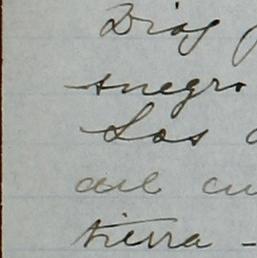 Diaz
snegro
Los
del cu
tierra -